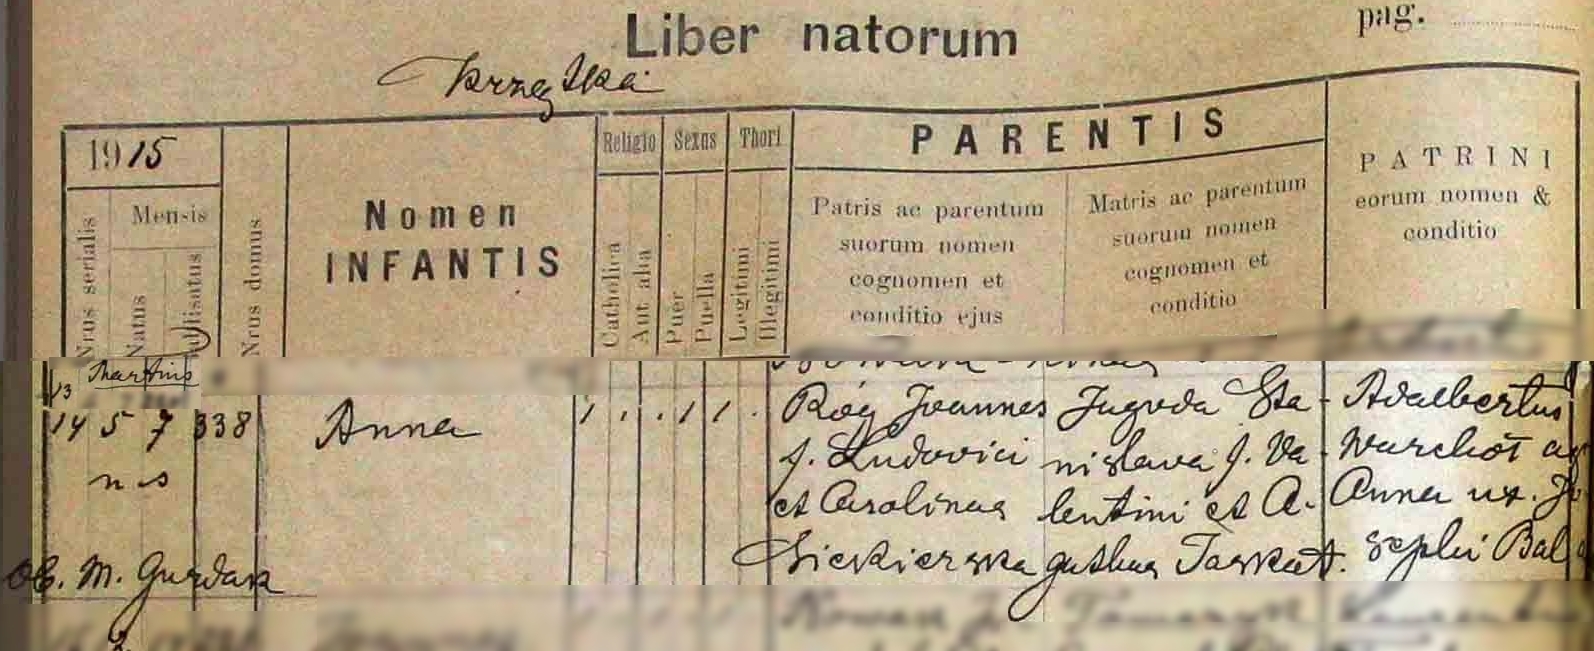 Liber natorum
pag.
Krzątka
1915
Nrus serialis
Mensis
Natus
Nrus domus
Nomen
INFANTIS
Religio
Catholica
Aut alia
Sexus
Puer
Puella
Thori
Legitimi
Illegitimi
PARENTIS
Patris ac parentum
suorum nomen
cognomen et
conditio ejus
Matris ac parentum
suorum nomen
cognomen et
conditio
PATRINI
eorum nomen &
conditio
13 Martius
14 5 7 338 Anna 1 . . 1 1 . Róg Joannes Jugoda Sta- Adalbertus
n s f. Ludovici nislava f. Va- Warchoł ag
et Carolinae lentini et A- Anna ux. Jo
Ob. M. Gurdak Siekierska gathae Taskat. sephi Bal